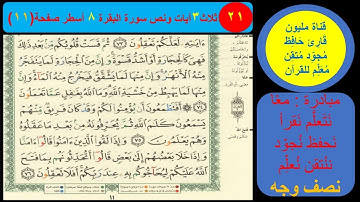 ٢١ ثلاث٣ آيات ونص سورة البقرة ٨ أسطر صفحة(١١)
قناة مليون
قارئ حافظ
مُجوِّد مُتقن
مُعلِّم للقرآن
مبادرة : معًا
نتعلَّم نَقرأ
نحفظ نُجوِّد
نتقن نُعلِّم
نصف وجه
ءَايَٰتِهِۦ لَعَلَّكُمْ تَعْقِلُونَ ٧٣ ثُمَّ قَسَتْ قُلُوبُكُم مِّنۢ بَعْدِ
ذَٰلِكَ فَهِيَ كَٱلْحِجَارَةِ أَوْ أَشَدُّ قَسْوَةً وَإِنَّ مِنَ ٱلْحِجَارَةِ
لَمَا يَتَفَجَّرُ مِنْهُ ٱلْأَنْهَٰرُ وَإِنَّ مِنْهَا لَمَا يَشَّقَّقُ فَيَخْرُجُ
مِنْهُ ٱلْمَآءُ وَإِنَّ مِنْهَا لَمَا يَهْبِطُ مِنْ خَشْيَةِ ٱللَّهِ وَمَا ٱللَّهُ
بِغَٰفِلٍ عَمَّا تَعْمَلُونَ ٧٤ أَفَتَطْمَعُونَ أَن يُؤْمِنُوا۟ لَكُمْ وَقَدْ كَانَ فَرِيقٌ مِّنْهُمْ
يَسْمَعُونَ كَلَٰمَ ٱللَّهِ ثُمَّ يُحَرِّفُونَهُۥ مِنۢ بَعْدِ مَا عَقَلُوهُ
وَهُمْ يَعْلَمُونَ ٧٥ وَإِذَا لَقُوا۟ ٱلَّذِينَ ءَامَنُوا۟ قَالُوٓا۟ ءَامَنَّا
وَإِذَا خَلَا بَعْضُهُمْ إِلَىٰ بَعْضٍ قَالُوٓا۟ أَتُحَدِّثُونَهُم بِمَا فَتَحَ
ٱللَّهُ عَلَيْكُمْ لِيُحَآجُّوكُم بِهِۦ عِندَ رَبِّكُمْ أَفَلَا تَعْقِلُونَ ٧٦
١١